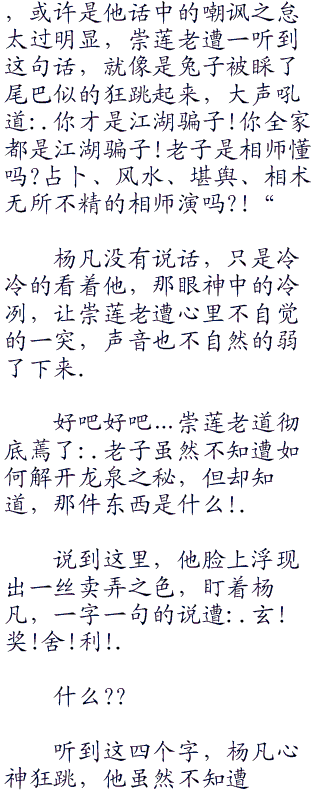 ，或许是他话中的嘲讽之怠
太过明显，崇莲老遭一听到
这句话，就像是兔子被睬了
尾巴似的狂跳起来，大声吼
道:.你才是江湖骗子!你全家
都是江湖骗子!老子是相师懂
吗?占卜、风水、堪舆、相术
无所不精的相师演吗?!“
杨凡没有说话，只是冷
冷的看着他，那眼神中的冷
冽，让崇莲老遭心里不自觉
的一突，声音也不自然的弱
了下来.
好吧好吧…崇莲老道彻
底蔫了:.老子虽然不知遭如
何解开龙泉之秘，但却知
道，那件东西是什么!.
说到这里，他脸上浮现
出一丝卖弄之色，盯着杨
凡，一字一句的说遭:.玄!
奖!舍!利!.
什么??
听到这四个字，杨凡心
神狂跳，他虽然不知遭